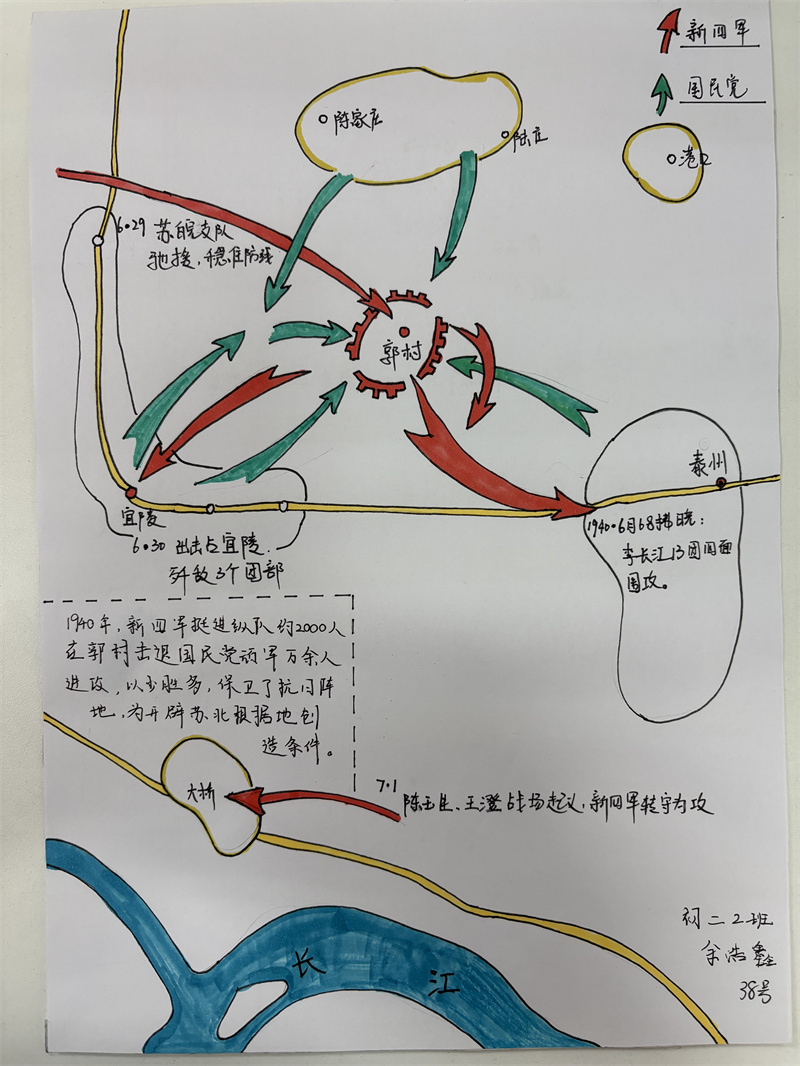 新四军
国民党
陈家庄
陆庄
港口
6.29 苏皖支队
驰援,稳住防线
郭村
泰州
宜陵
6.30 出击占宜陵.
歼敌3个团部
1940.6月68拂晓:
李长江13团四面
围攻。
1940年,新四军挺进纵队约2000人
在郭村击退国民党顽军万余人
进攻,以少胜多,保卫了抗日阵
地,为开辟苏北根据地创
造条件。
大桥
7.1
陈玉生、王澄战场起义,新四军转守为攻
长江
初二2班
38号